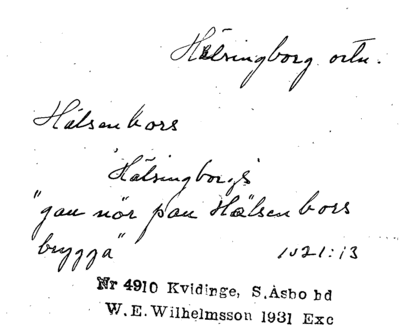 Hälsingborg ortn.
Hälsenbors
Hälsingborgs
"gau nör pau Hälsenbors
brygga" 1021:13
Nr 4910 Kvidinge, S.Åsbo hd
W.E.Wilhelmsson 1931 Exc